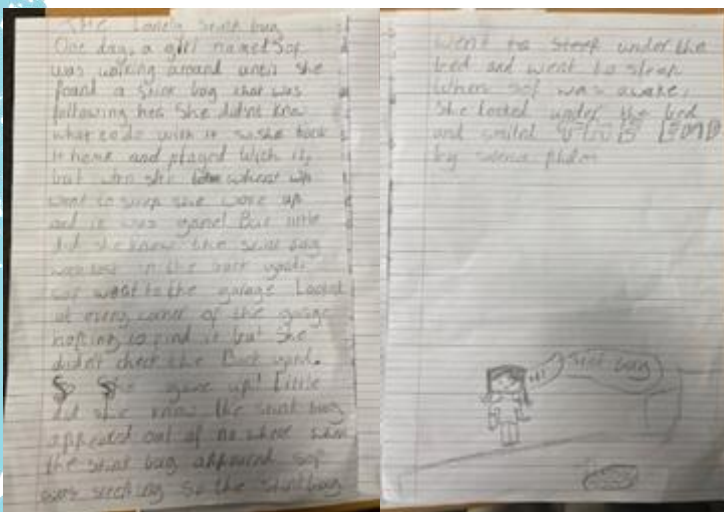 THE Lonely stink bug
One day, a girl named Sof
was walking around until she
foand a stink bug that was
following her She didnt know
what to do with it so she took
it home and played with it,
but when she
went to sleep she woke up
and it was gone! But little
did she know the stink bug
was lost in the back yard.
sof went to the garage Looked
at every corner of the garage
hoping to find it but she
didn't check the Back yard.
So She gave up! Little
did she know the stink bug
appeared out of no where when
the stink bug appeared sof
was sleeping so the stink bug
went to sleep under the
bed and went to sleep
When sof was awake,
She looked under the bed
and smiled THE END
by
stink bug